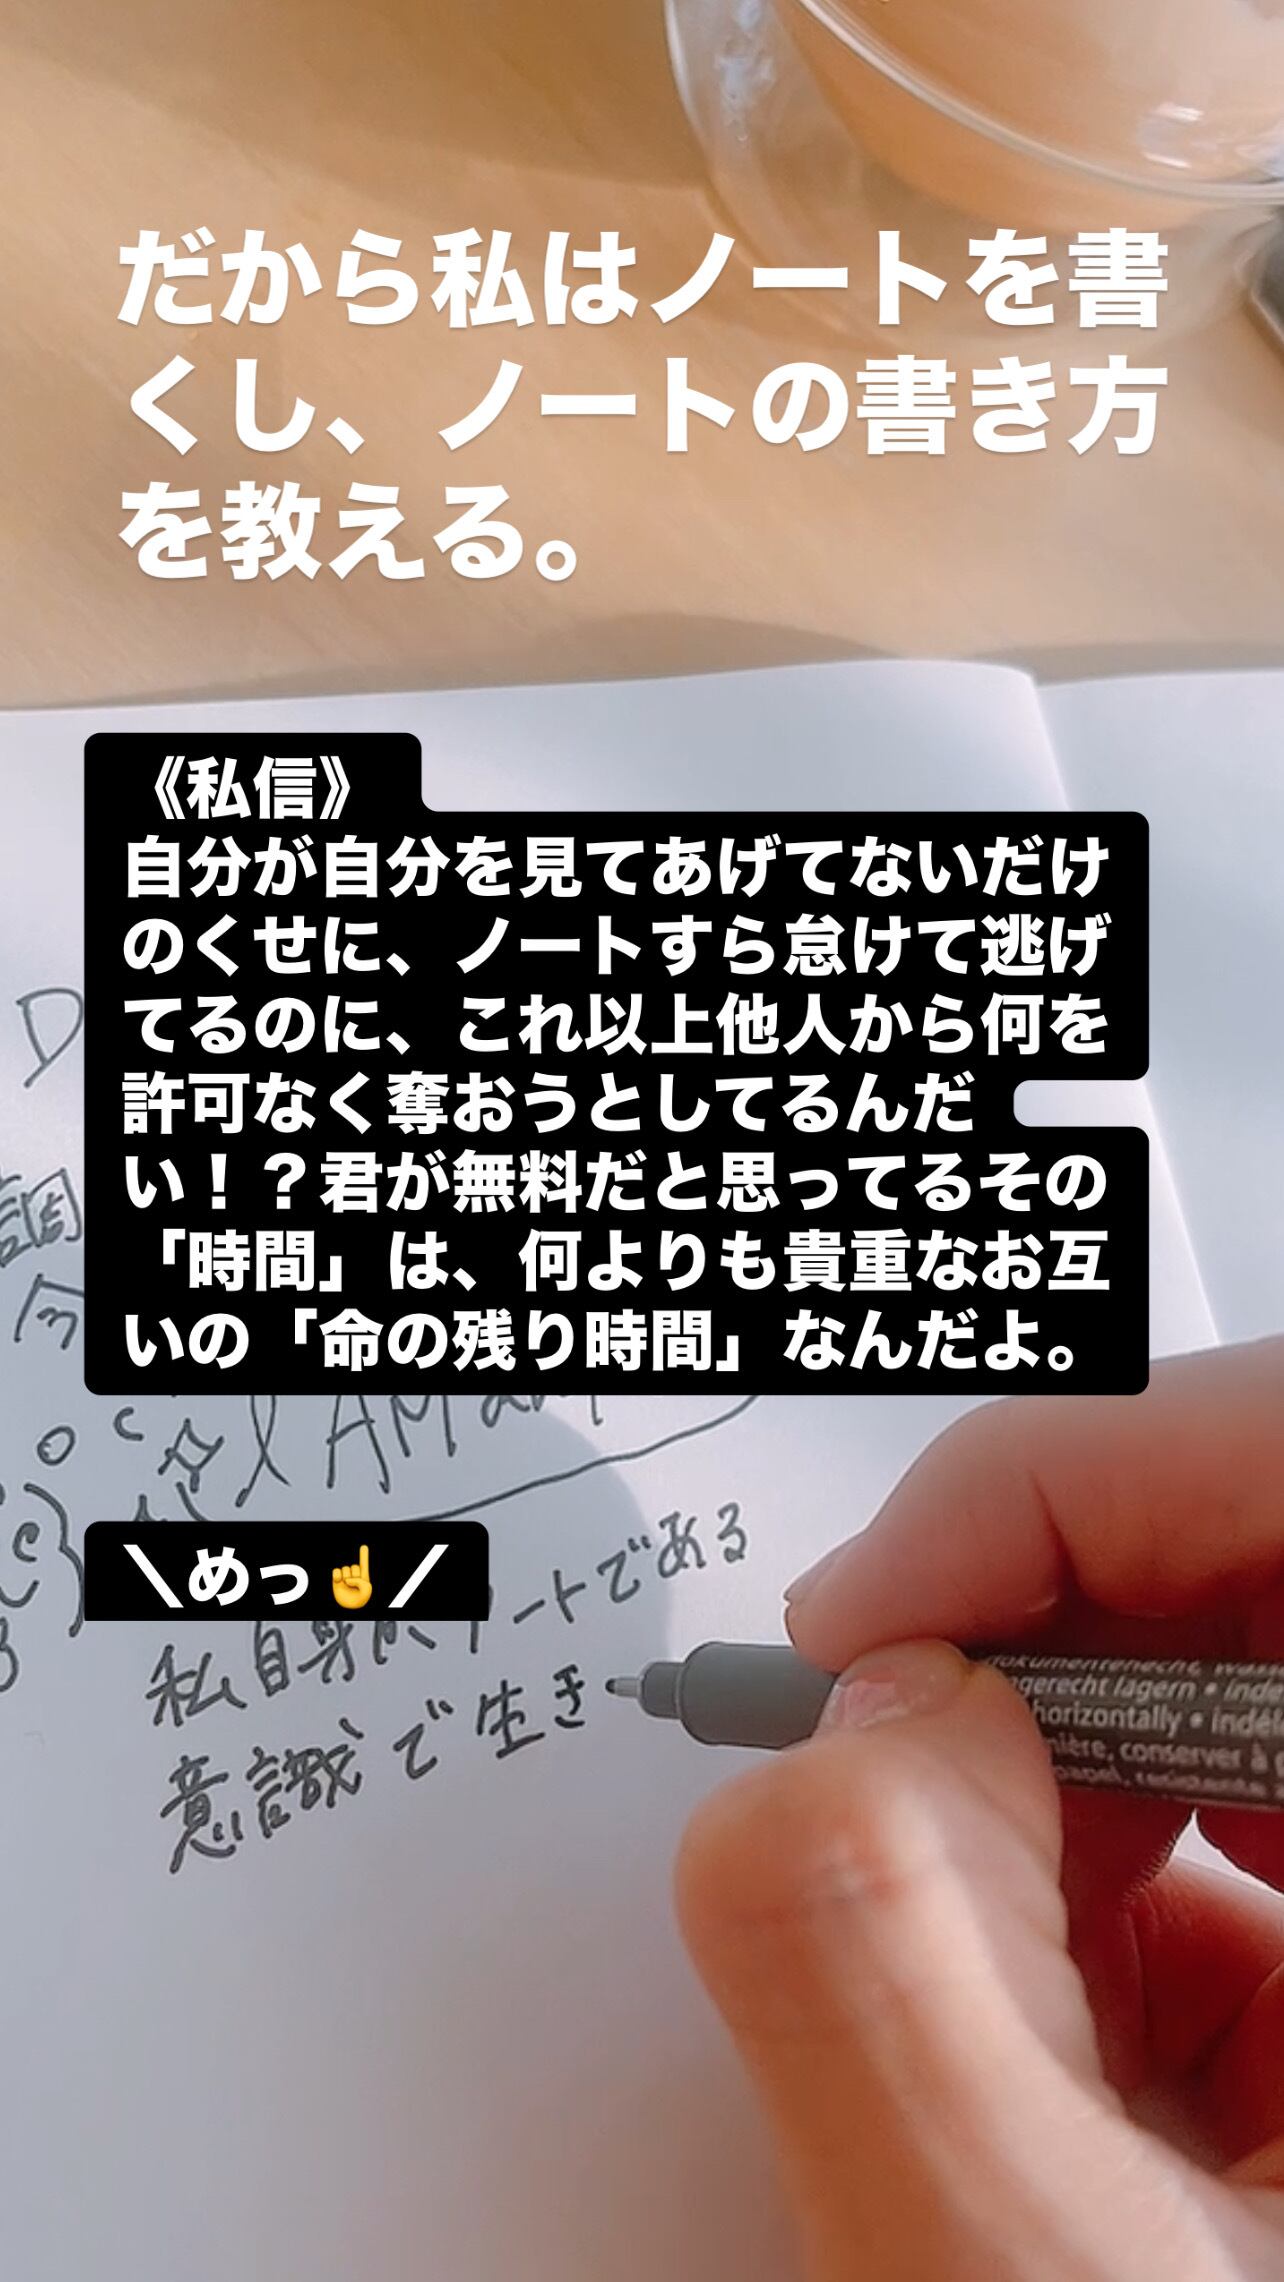 だから私はノートを書
くし、ノートの書き方
を教える。
《私信》
自分が自分を見てあげてないだけ
のくせに、ノートすら怠けて逃げ
てるのに、これ以上他人から何を
許可なく奪おうとしてるんだ
い！？君が無料だと思ってるその
「時間」は、何よりも貴重なお互
いの「命の残り時間」なんだよ。
D
今
I AM
＼めっ☝️／
私自身がノートである
意識で生き
dokumentenecht,
gerecht lagern • inde
horizontally • indé
nière, conserver à